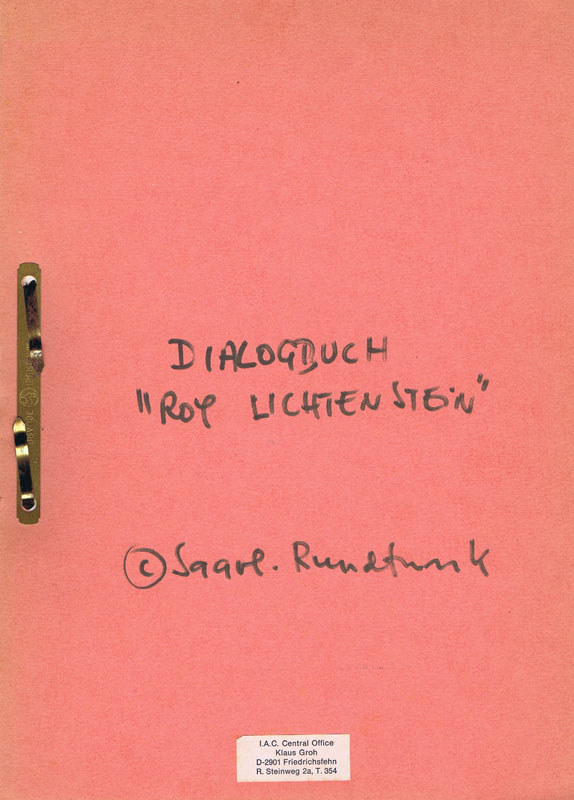 DIALOGBUCH
"ROY LICHTENSTEiN"
© Saarl. Rundfunk
I.A.C. Central Office
Klaus Groh
D-2901 Friedrichsfehn
R. Steinweg 2a, T. 354